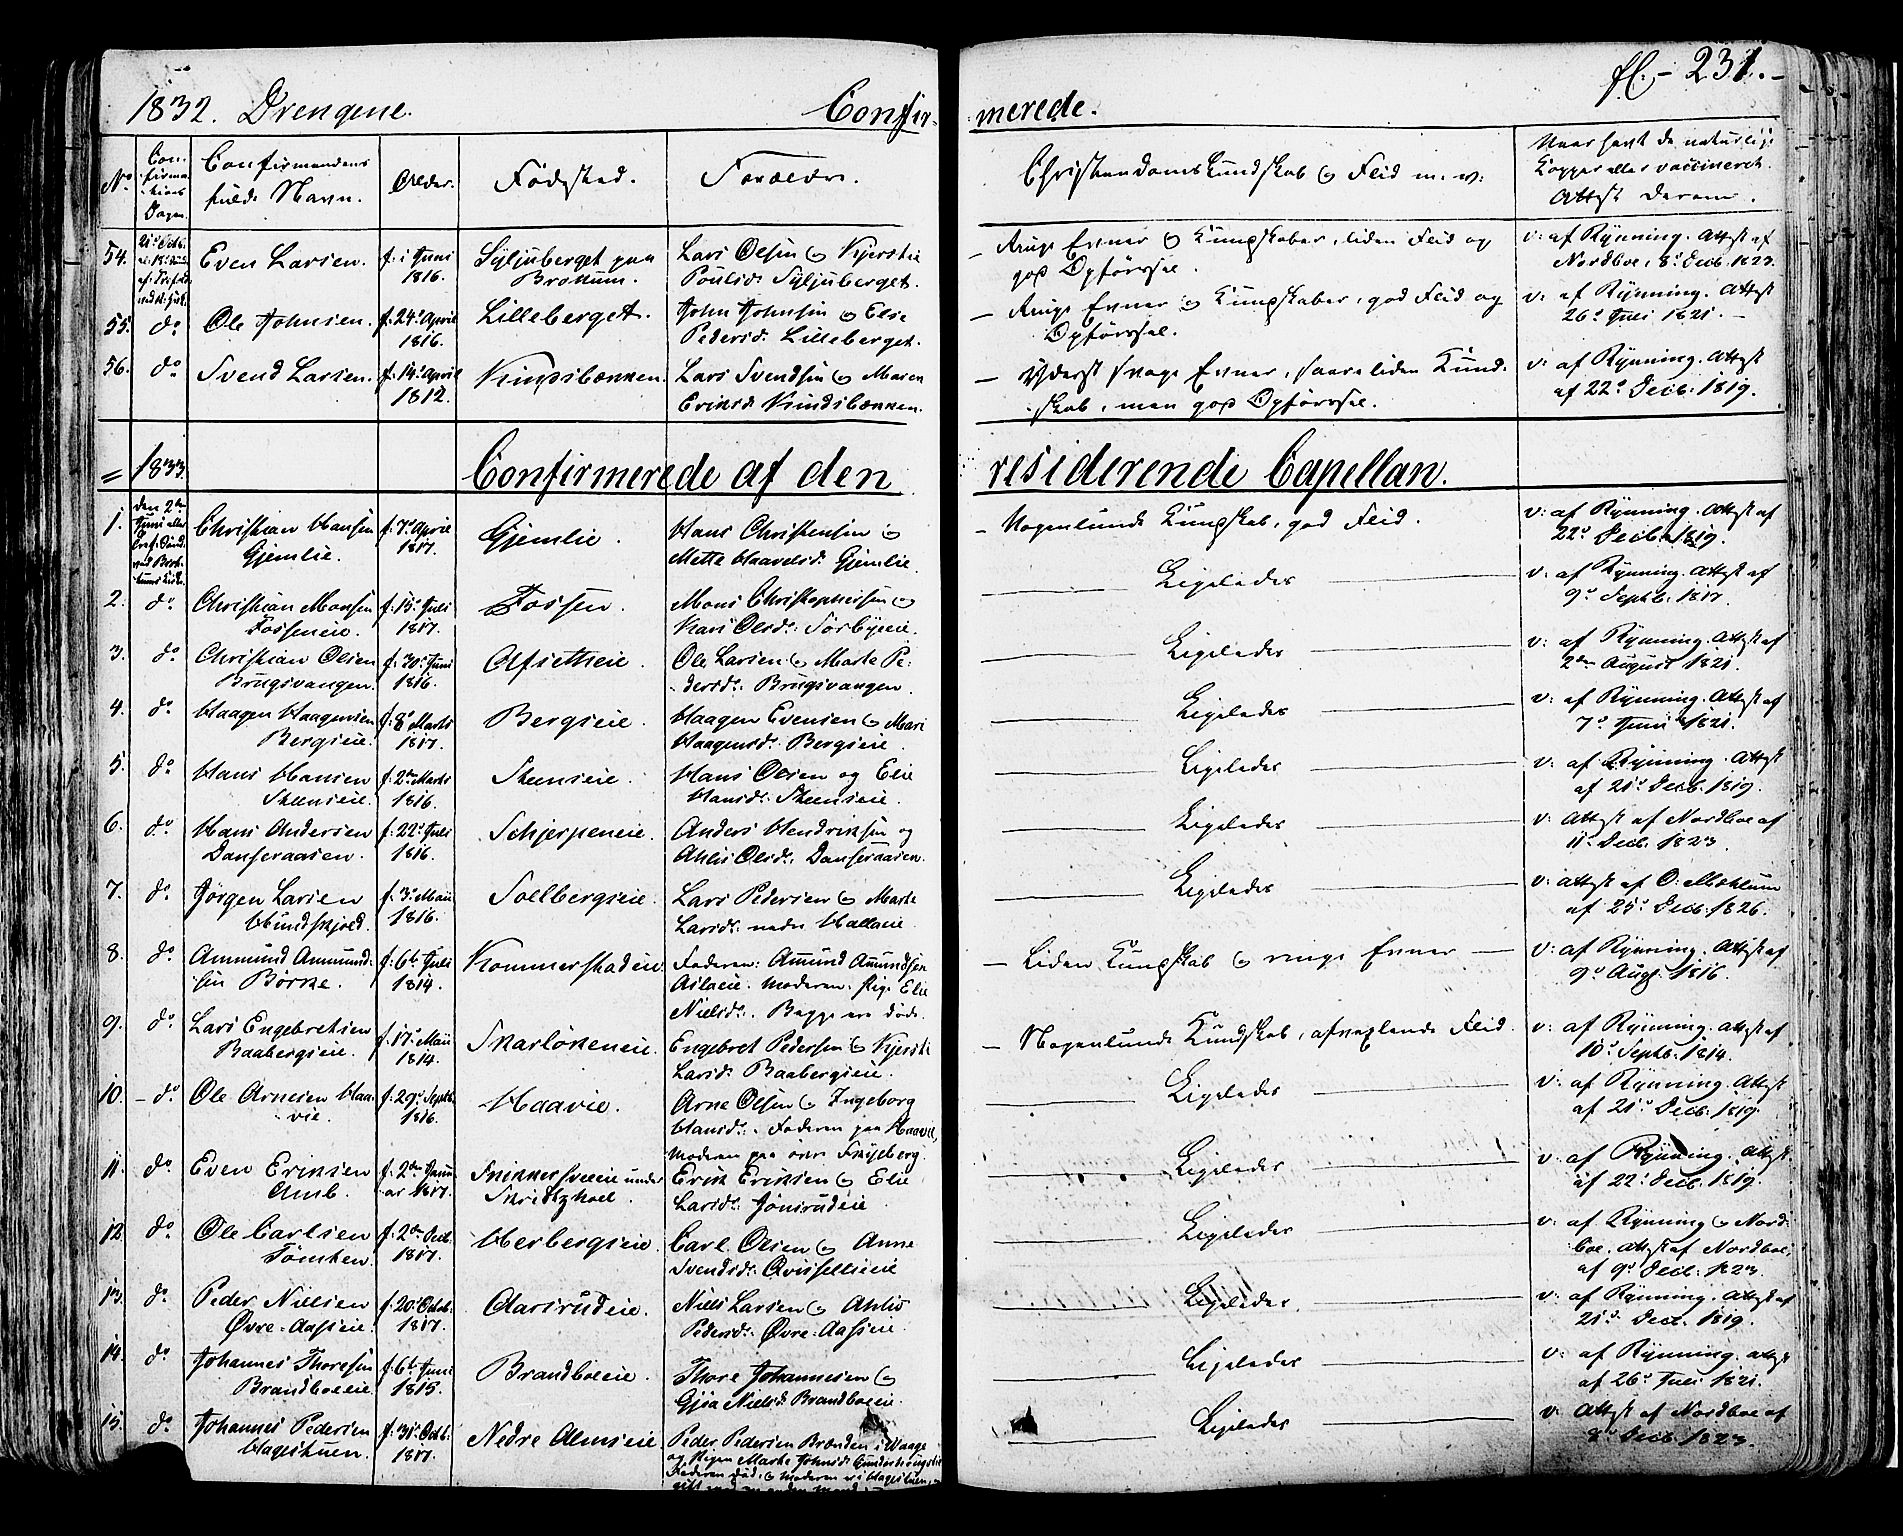 1832. Drengene. Confir- merede. fl. - 231. -
No. Confirma-tions Dagen. Confirmandens fulde Navn. Alder. Födested. Forældre. Christendoms Kundskab og Flid m. v: Naar havt de naturlige Kopper eller vaccineret. Attest derom.
54. Even Larsen. f. i Juni 1816. Syljuberget paa Brøttum. Lars Olsen og Kjerstie Poulsd. Syljuberget. - Ringe Evner og Kundskaber, liden Flid og god Opförsel. v: af Rynning. Attest af Nordboe, 8de Decb. 1823.
55. do Ole Johnsen. f. 24de April 1816. Lilleberget. John Johnsen og Elie Pedersd: Lilleberget. - Ringe Evner og Kundskaber, god Flid og Opförsel. v: af Rynning. Attest 26de Juli 1821. -
56. do Svend Larsen. f. 14de April 1812. Lars Svendsen og Maren Eriksd. - Yderst svage Evner, saare liden Kund-skab, men god Opförsel. v: af Rynning. Attest af 22de Decb: 1819.
= 1833. Confirmerede af den residerende Capellan.
1. Christian Hansen Gjemlie. f. 7de April 1817. Gjemlie. Hans Christensen og Mette Haavelsd: Gjemlie. - Nogenlunde Kundskab, god Flid. v: af Rynning. Attest af 22de Decb. 1819.
2. do Christian Monsen Fosseneie. f. 15de Juli 1817. Fossen. Mons Christophersen og Kari Olsd: Sörbyeeie. Ligeledes v: af Rynning. Attest af 9de Septb. 1817.
3. do Christian Olsen Brugsvangen. f. 30te Juni 1816. Alfsetheie. Ole Larsen og Marte Pe-dersd: Brugsvangen. Ligeledes v: af Rynning. Attest af 2den August 1821.
4. do Haagen Haagensen Bergseie. f. 8de Marts 1817. Bergseie. Haagen Evensen og Mari Haagensd: Bergseie. Ligeledes v: af Rynning. Attest af 7de Juni 1821.
5. do Hans Hansen Steenseie. f. 2den Marts 1816. Steenseie. Hans Olsen og Elie Hansd: Steenseie. Ligeledes v: af Rynning. Attest af 21de Decb. 1819.
6. do Hans Andersen Danseraasen. f. 22de Juli 1816. Schjerpeneie. Anders Hendriksen og Ahlis Olsd: Danseraasen. Ligeledes v: Attest af Nordboe af 11te Decb. 1823.
7. do Jörgen Larsen Hundskjold. f. 3de Maii 1816. Sollbergseie. Lars Pedersen og Marte Larsd: nedre Hallaeie. Ligeledes v: attest af O. Mæhlum af 25de Decb: 1826.
8. do Ammund Ammund-sen Börke. f. 6te Juli 1814. Kommerstadeie. Faderen: Amund Amundsen Moderen: Pige Elie Nielsd:. Begge ere döde. - Liden Kundskab og ringe Evner - v: af Rynning. Attest af 9de Aug: 1816.
9. do Lars Engebretsen Baabergseie. f. 17de Maii 1814. Skarlökeneie. Engebret Pedersen og Kjersti Larsd: Baabergseie. - Nogenlunde Kundskab, afvexlende Flid. v: af Rynning. Attest af 10de Septb: 1814.
10. - do Ole Arnesen Haa-vie. f. 29de Septb. 1816. Haavie. Arne Olsen og Ingeborg Hansd:. Faderen paa Haavie, Moderen paa övre Frydberg. Ligeledes v: af Rynning. Attest af 21de Decb: 1819.
11. do Even Eriksen Amb. f. 2den Janu-ar 1817. under Erik Eriksen og Elie Larsd: Jönsrudeie Ligeledes v: af Rynning. Attest. af 22de Decb. 1819.
12. do Ole Carlsen Tömten. f. 2den Decb. 1817. Herbergseie. Carl Olsen og Anne Svendsd: Qvisslleeie Ligeledes v: af Rynning og Nord-boe. Attest af Nordboe, af 9de Decb. 1823.
13. do Peder Nielsen Øvre-Aaseeie. f. 20de Octob. 1817. Olasrudeie. Niels Larsen og Ahlis Pedersd: Øvre-Aaseeie. Ligeledes v: af Rynning. Attest af 21de Decb. 1819.
14. do Johannes Thoresen Brandboeeie. f. 6te Juni 1815. Brandboeeie. Thore Johannesen og Gjea Nielsd: Brandboeeie. Ligeledes v: af Rynning. attest af 26de Juli 1821.
15. do Johannes Pedersen Hagestuen. f. 31te Octb. 1817. Nedre Almseie Peder Pedersen Brænden i Vaage og Pigen Marte Johnsd: Faderen död, og Moderen er i Hagestuen, Ligeledes v: Attest af Nordboe af 8de Decb. 1823.